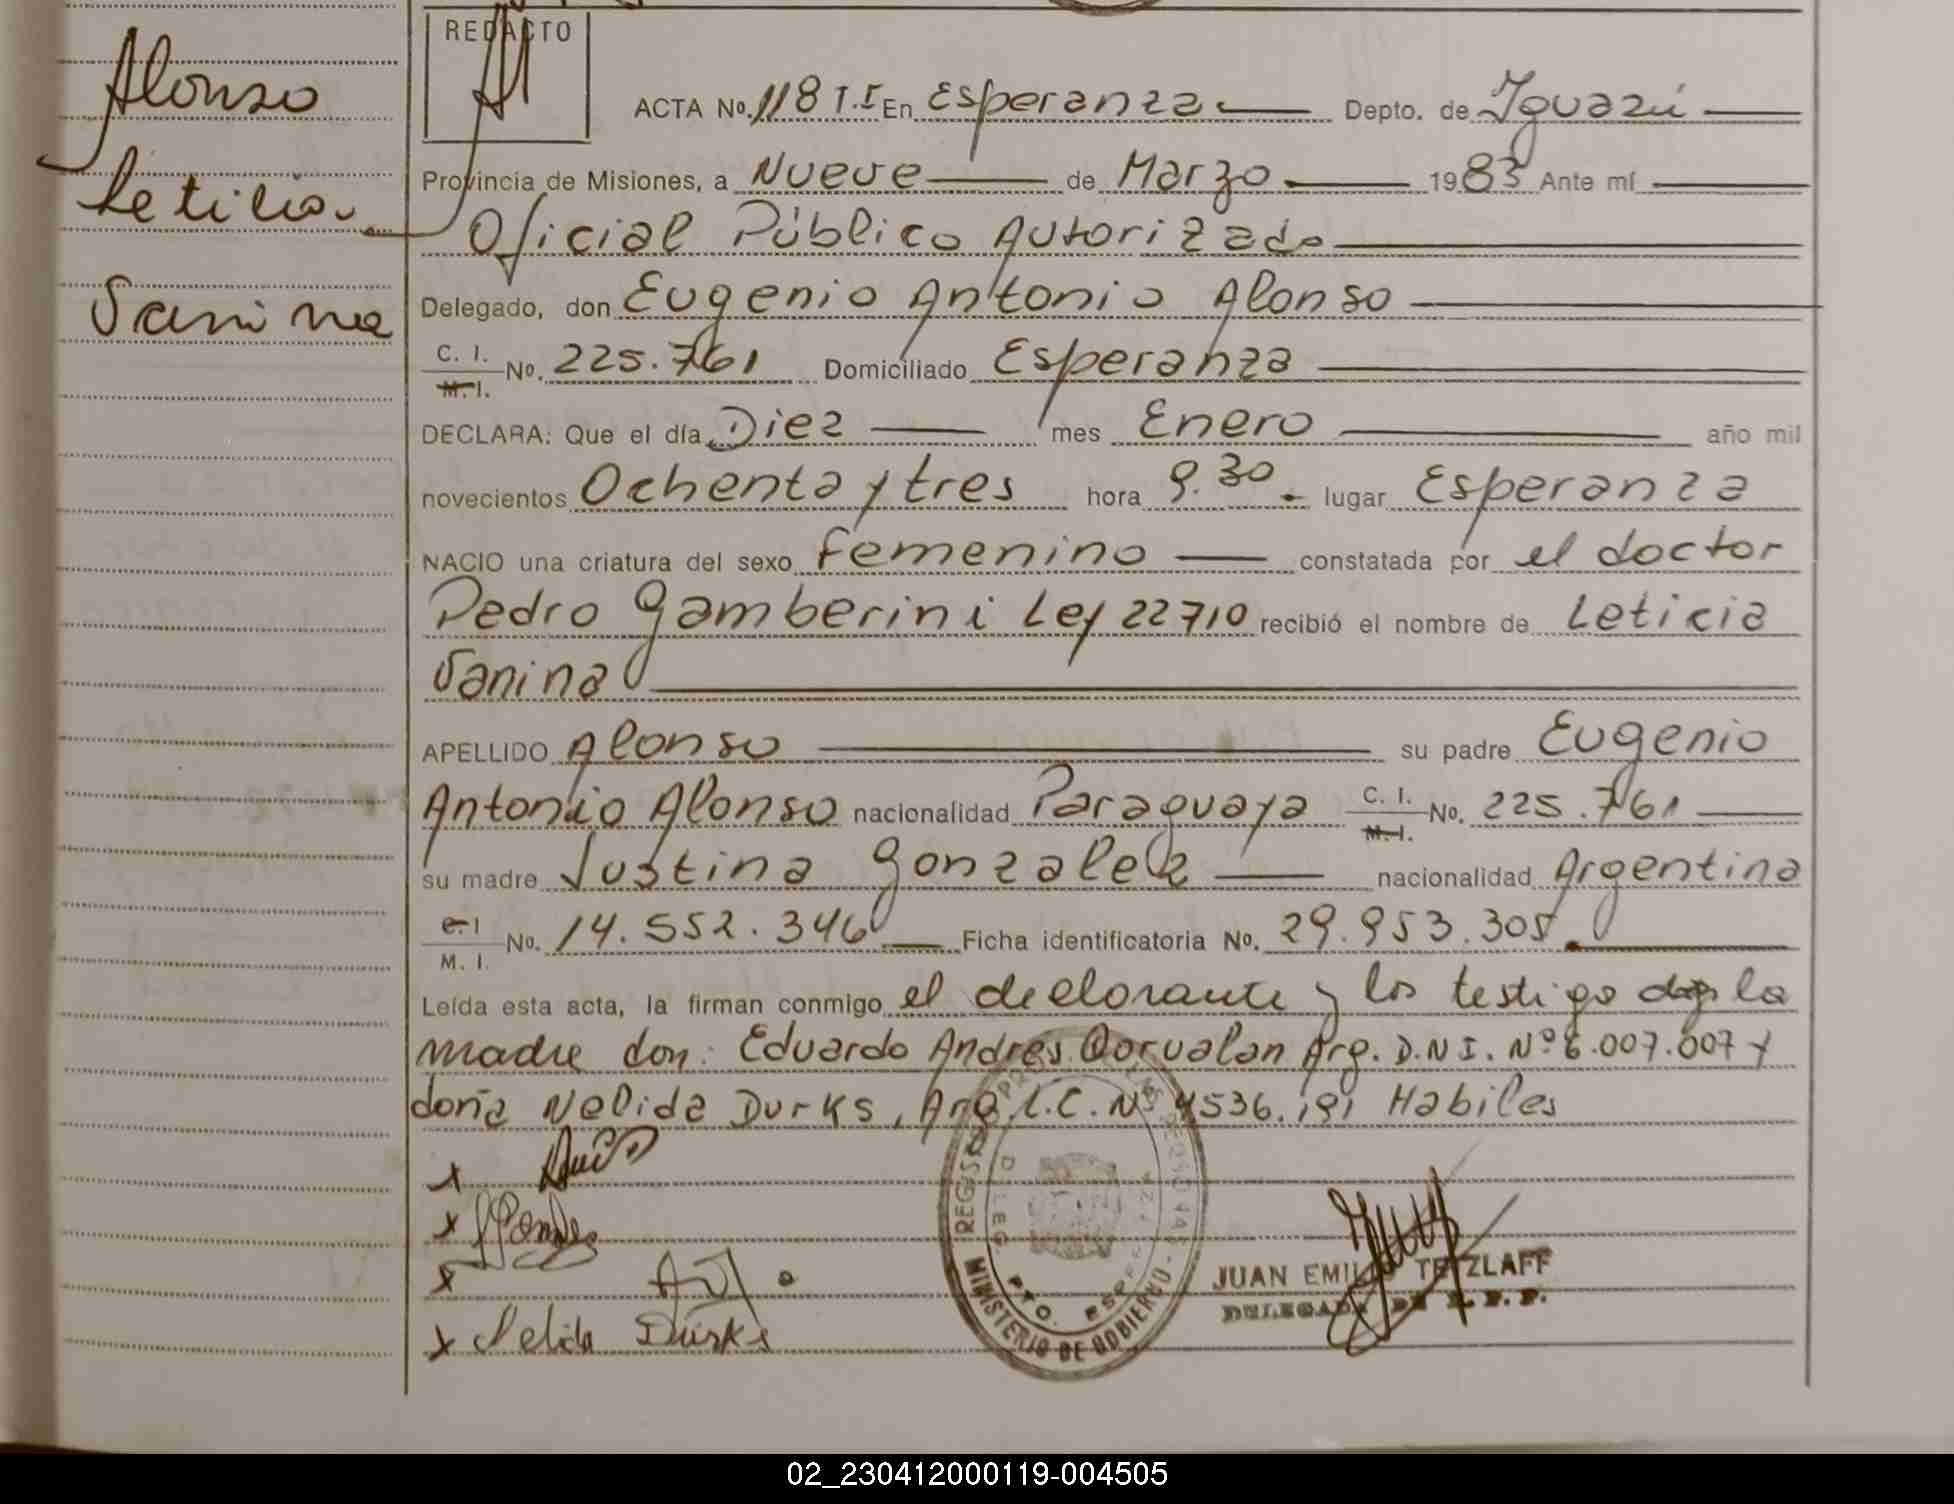 Alonso
Leticia
Vanina
REDACTO
ACTA Nº. 118 T.I En Esperanza Depto. de Iguazú
Provincia de Misiones, a Nueve de Marzo 1983 Ante mí
Oficial Público Autorizado
Delegado, don Eugenio Antonio Alonso
C. I.
M. I. Nº. 225.761 Domiciliado Esperanza
DECLARA: Que el día Diez mes Enero año mil
novecientos Ochenta y tres hora 9.30 lugar Esperanza
NACIO una criatura del sexo femenino constatada por el doctor
Pedro Gamberini Ley 22710 recibió el nombre de Leticia
Vanina
APELLIDO Alonso su padre Eugenio
Antonio Alonso nacionalidad Paraguaya C. I. M. I. Nº. 225.761
su madre Justina Gonzalez nacionalidad Argentina
C. I
M. I. Nº. 14.552.346 Ficha identificatoria Nº. 29.953.305
Leída esta acta, la firman conmigo el declorante y los testigo la
madre don: Eduardo Andres Dorvalan Arg. D.N.I. Nº 6.007.007 y
doña Nelida Durks, Arg. L.C. Nº 4536.191 Habiles
x
x
x
x Nelida Durks
REGIS
MINISTERIO DE GOBIERNO
DELEG. PTO. ESPERANZA
JUAN EMILIO TETZLAFF
DELEGADA DE R. P. P.
02_230412000119-004505